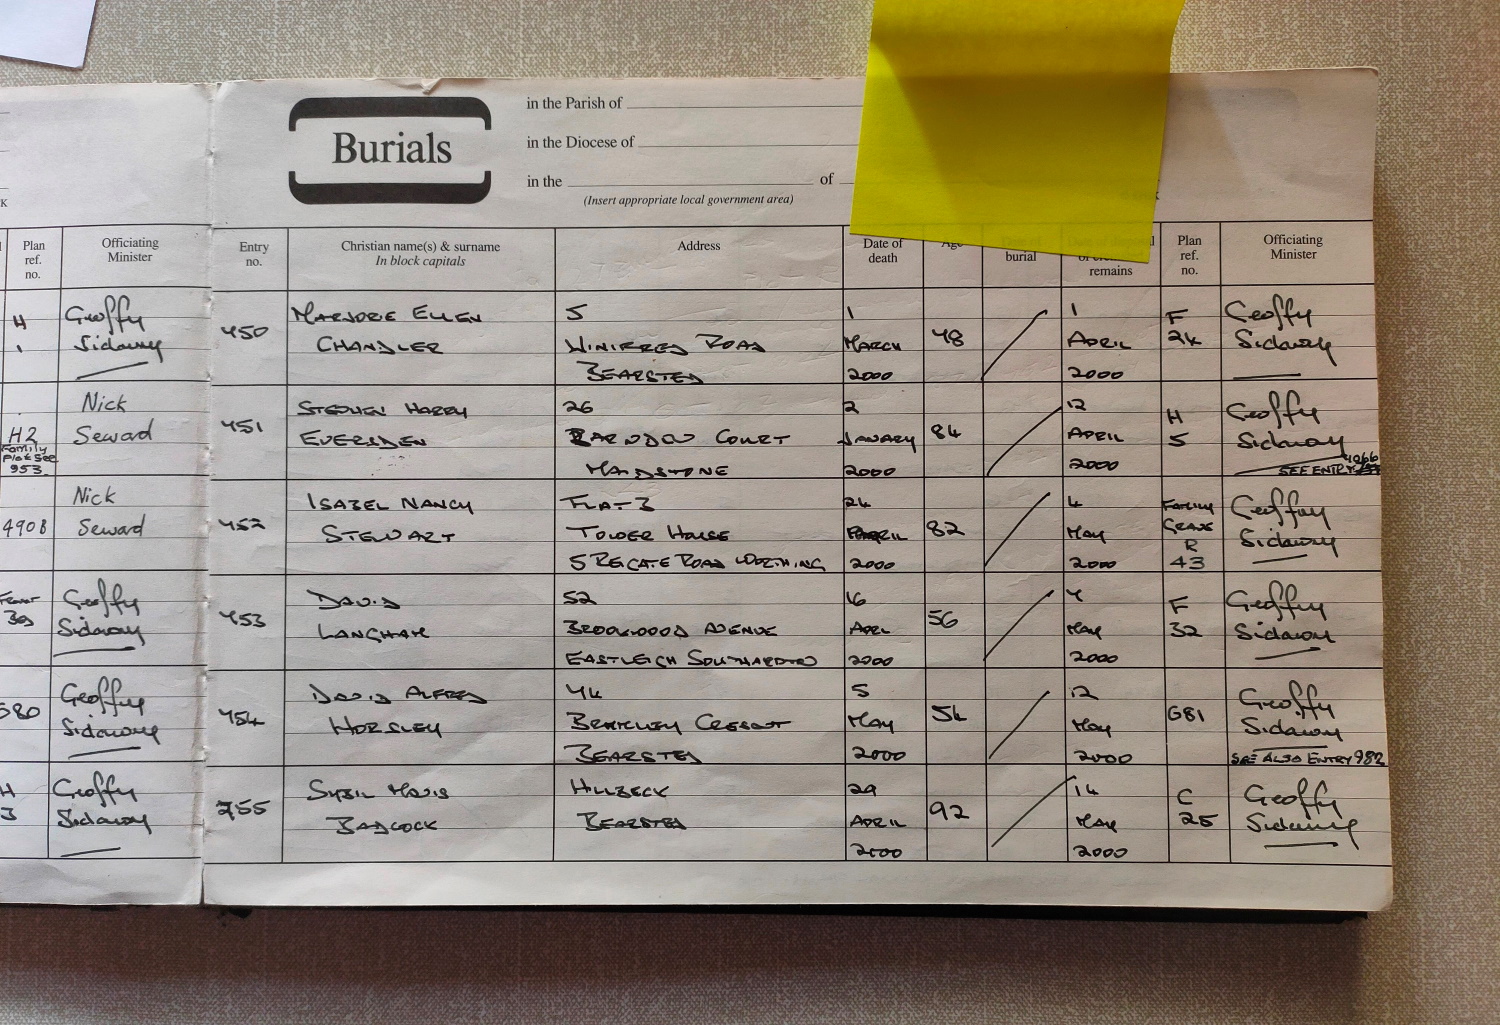 Burials
in the Parish of
in the Diocese of
in the of
(Insert appropriate local government area)
Plan
ref.
no.
Officiating
Minister
H
1
Geoffy
Sidaway
Nick
Seward
H2
Family
Plot see
953
Nick
Seward
490B
Geoffy
Sidaway
Geoffy
Sidaway
680
H
3
Geoffy
Sidaway
Entry
no.
Christian name(s) & surname
In block capitals
Address
Date of
death
Age
burial
remains
Plan
ref.
no.
Officiating
Minister
MARJORIE ELLEN
CHANDLER
5
WINIFRED ROAD
BEARSTED
1
MARCH
2000
1
APRIL
2000
F
24
Geoffy
Sidaway
STEPHEN HARRY
EVERSDEN
26
COURT
MAIDSTONE
2
JANUARY
2000
84
12
APRIL
2000
H
5
Geoffy
Sidaway
SEE ENTRY 1066
ISABEL NANCY
STEWART
FLAT 3
TOWER HOUSE
5 REIGATE ROAD WORTHING
24
APRIL
2000
82
4
MAY
2000
FAMILY
GRAVE
R
43
Geoffy
Sidaway
DAVID
LANGHAM
52
BROOKWOOD AVENUE
EASTLEIGH
16
APRIL
2000
56
MAY
2000
F
32
Geoffy
Sidaway
DAVID ALFRED
HORSLEY
44
CRESCENT
BEARSTED
5
MAY
2000
54
12
MAY
2000
G81
Geoffy
Sidaway
SEE ALSO ENTRY 982
755
SYBIL MAVIS
BADCOCK
HILLBECK
BEARSTED
29
APRIL
2000
92
14
MAY
2000
C
25
Geoffy
Sidaway